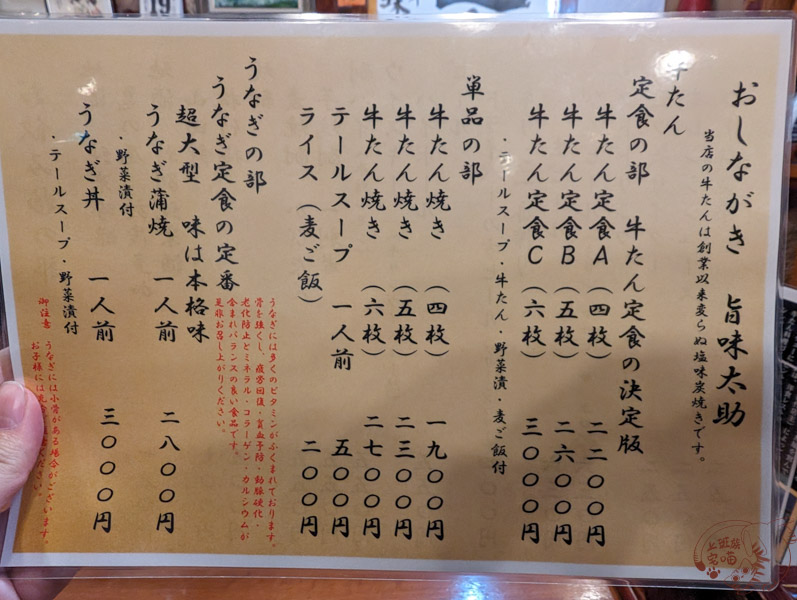 おしながき 旨味太助
当店の牛たんは創業以来変らぬ塩味炭焼きです。
牛たん
定食の部 牛たん定食の決定版
牛たん定食A (四枚) 二二〇〇円
牛たん定食B (五枚) 二六〇〇円
牛たん定食C (六枚) 三〇〇〇円
・テールスープ・牛たん・野菜漬・麦ご飯付
単品の部
牛たん焼き (四枚) 一九〇〇円
牛たん焼き (五枚) 二三〇〇円
牛たん焼き (六枚) 二七〇〇円
テールスープ 一人前 五〇〇円
ライス(麦ご飯) 二〇〇円
うなぎの部
うなぎ定食の定番
うなぎには多くのビタミンがふくまれております。
骨を強くし、疲労回復・貧血予防・動脈硬化・
老化防止とミネラル・コラーゲン・カルシウムが
含まれバランスの良い食品です。
是非お召し上がりください。
超大型 味は本格味
うなぎ蒲焼 一人前 二八〇〇円
・野菜漬付
うなぎ丼 一人前 三〇〇〇円
・テールスープ・野菜漬付
御注意 うなぎには小骨がある場合がございます。
お子様には
ください。
上班族
宅喵
19